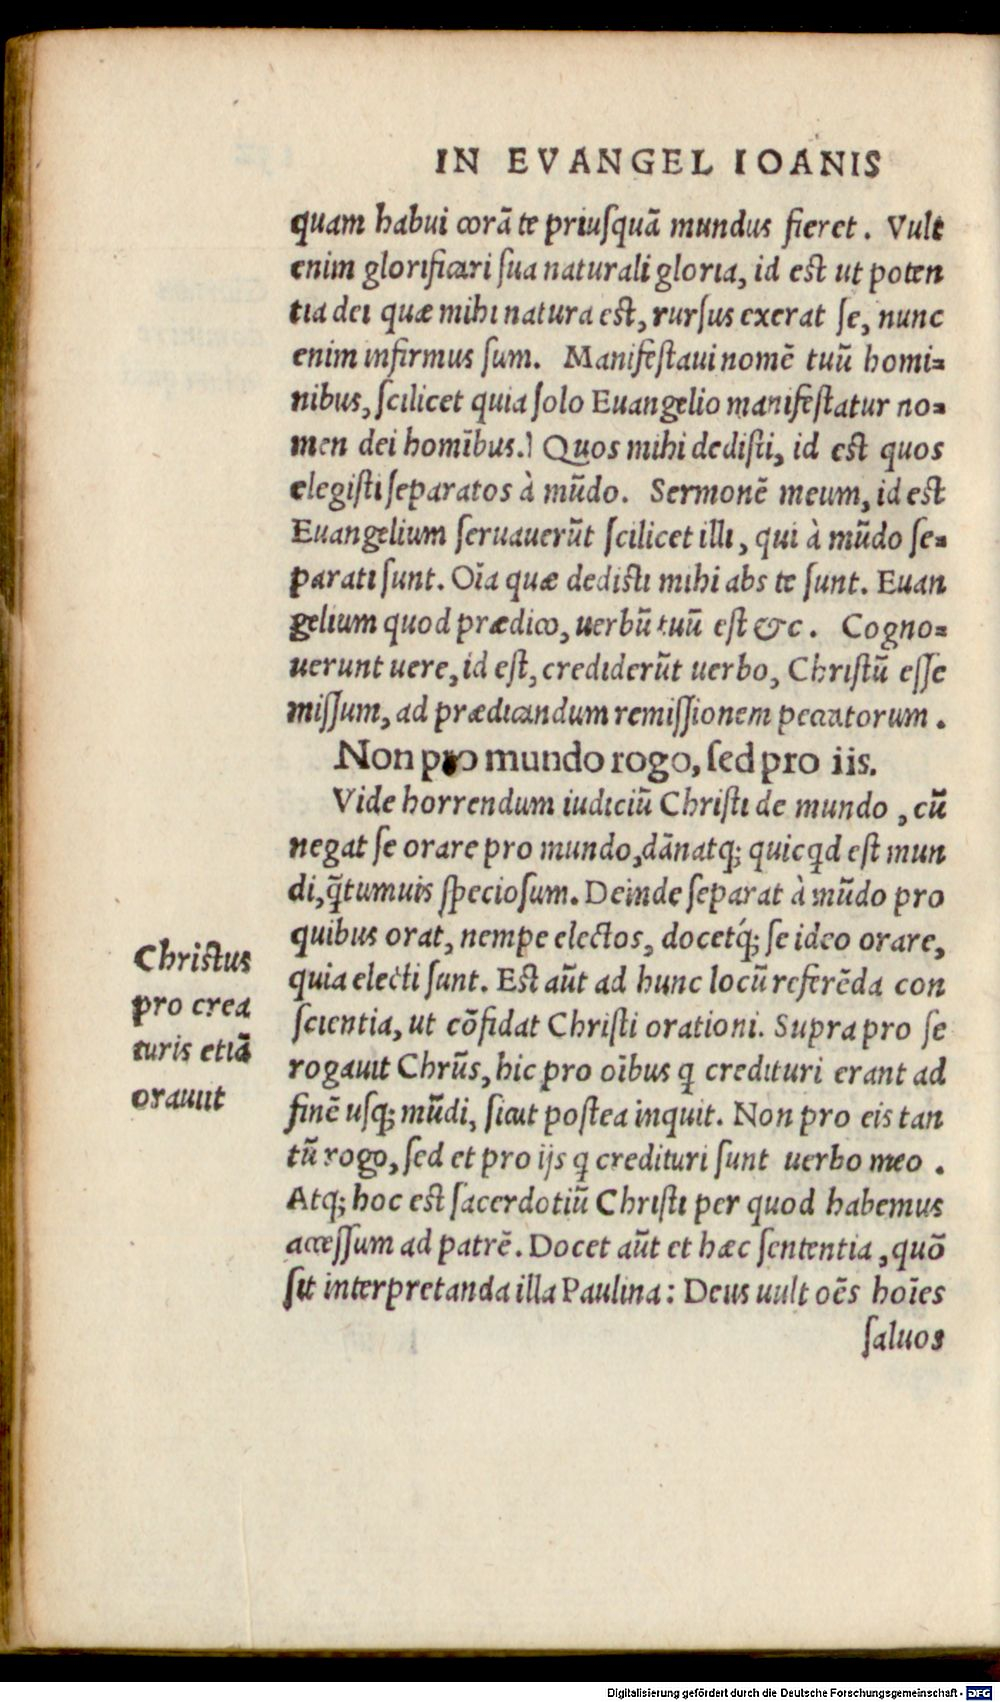 IN EVANGEL IOANIS
quam habui corã te priuſquã mundus fieret. Vult
enim glorificari ſua naturali gloria, id est ut poten
tia dei quæ mihi natura est, rurſus exerat ſe, nunc
enim infirmus ſum. Manifeſtaui nomẽ tuũ homi=
nibus, ſcilicet quia ſolo Euangelio manifeſtatur no=
men dei homĩbus.) Quos mihi dediſti, id est quos
elegiſti ſeparatos à mũdo. Sermonẽ meum, id est
Euangelium ſeruauerũt ſcilicet illi, qui à mũdo ſe=
parati ſunt. Oĩa quæ dedisti mihi abs te ſunt. Euan
gelium quod prædico, uerbũ tuũ eſt &c. Cogno=
uerunt uere, id eſt, crediderũt uerbo, Chriſtũ eſſe
miſſum, ad prædicandum remiſſionem peccatorum.
Non pro mundo rogo, ſed pro iis.
Vide horrendum iudiciũ Chriſti de mundo, cũ
negat ſe orare pro mundo, dãnatq; quicqd eſt mun
di, q̃tumuis ſpecioſum. Deinde ſeparat à mũdo pro
quibus orat, nempe electos, docetq́; ſe ideo orare,
quia electi ſunt. Est aũt ad hunc locũ referẽda con
ſcientia, ut cõfidat Chriſti orationi. Supra pro ſe
rogauit Chrũs, hic pro oĩbus q credituri erant ad
finẽ uſq; mũdi, ſicut poſtea inquit. Non pro eis tan
tũ rogo, ſed et pro ijs q credituri ſunt uerbo meo.
Atq; hoc est ſacerdotiũ Chriſti per quod habemus
acceſſum ad patrẽ. Docet aũt et hæc ſententia, quõ
ſit interpretanda illa Paulina: Deus uult oẽs hoĩes
ſaluos
Christus
pro crea
turis etiã
orauit
Digitalisierung gefördert durch die Deutsche Forschungsgemeinschaft - DFG